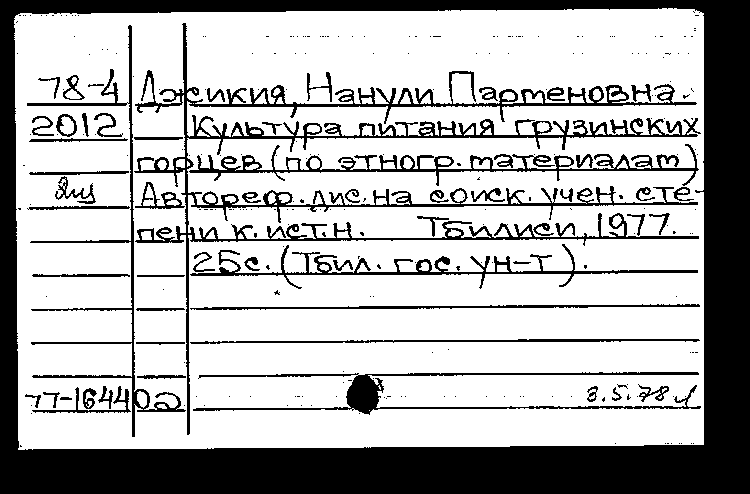 78-4 Джикия, Нанули Партеновна.
2012 Культура питания грузинских
горцев (по этногр. материалам)
Автореф. дис. на соиск. учен. сте-
пени к. ист. н. Тбилиси, 1977.
25с. (Тбил. гос. ун-т).
77-16440 8.5.78